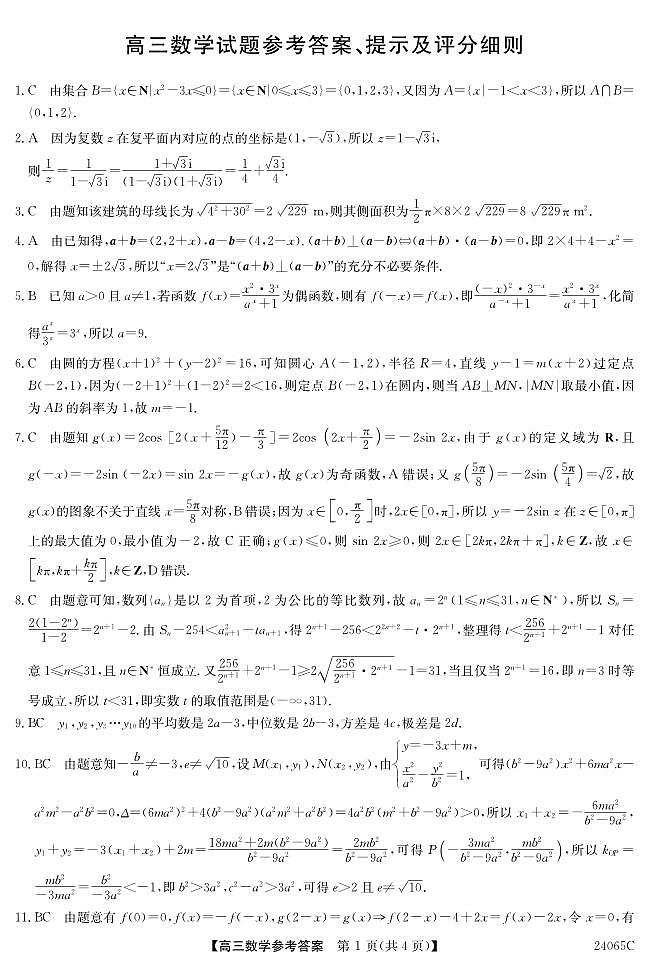 高三数学试题参考答案、提示及评分细则
1. C　由集合 B={x∈N|x²-3x≤0}={x∈N|0≤x≤3}={0,1,2,3},又因为 A={x|-1<x<3},所以 A∩B=
{0,1,2}.
2. A　因为复数 z 在复平面内对应的点的坐标是(1,-√3),所以 z=1-√3i,
则 1/z=1/(1-√3i)=(1+√3i)/((1-√3i)(1+√3i))=1/4+√3i/4.
3. C　由题知该建筑的母线长为√(4²+30²)=2√229 m,则其侧面积为 1/2 π×8×2√229=8√229π m².
4. A　由已知得,a+b=(2,2+x),a-b=(4,2-x).(a+b)⊥(a-b)⇔(a+b)·(a-b)=0,即 2×4+4-x²=
0,解得 x=±2√3,所以“x=2√3”是“(a+b)⊥(a-b)”的充分不必要条件.
5. B　已知 a>0 且 a≠1,若函数 f(x)=(x²·3ˣ)/(aˣ+1)为偶函数,则有 f(-x)=f(x),即((-x)²·3⁻ˣ)/(a⁻ˣ+1)=(x²·3ˣ)/(aˣ+1),化简
得 aˣ/3ˣ=3ˣ,所以 a=9.
6. C　由圆的方程(x+1)²+(y-2)²=16,可知圆心 A(-1,2),半径 R=4,直线 y-1=m(x+2)过定点
B(-2,1),因为(-2+1)²+(1-2)²=2<16,则定点 B(-2,1)在圆内,则当 AB⊥MN,|MN|取最小值,因
为 AB 的斜率为 1,故 m=-1.
7. C　由题知 g(x)=2cos[2(x+5π/12)-π/3]=2cos(2x+π/2)=-2sin 2x,由于 g(x)的定义域为 R,且
g(-x)=-2sin(-2x)=sin 2x=-g(x),故 g(x)为奇函数,A 错误;又 g(5π/8)=-2sin(5π/4)=√2,故
g(x)的图象不关于直线 x=5π/8对称,B 错误;因为 x∈[0,π/2]时,2x∈[0,π],所以 y=-2sin z 在 z∈[0,π]
上的最大值为 0,最小值为-2,故 C 正确;g(x)≤0,则 sin 2x≥0,则 2x∈[2kπ,2kπ+π],k∈Z,故 x∈
[kπ,kπ+kπ/2],k∈Z,D 错误.
8. C　由题意可知,数列{aₙ}是以 2 为首项,2 为公比的等比数列,故 aₙ=2ⁿ(1≤n≤31,n∈N*),所以 Sₙ=
2(1-2ⁿ)/(1-2)=2ⁿ⁺¹-2.由 Sₙ-254<a²ₙ₊₁-taₙ₊₁,得 2ⁿ⁺¹-256<2²ⁿ⁺²-t·2ⁿ⁺¹,整理得 t<256/2ⁿ⁺¹+2ⁿ⁺¹-1 对任
意 1≤n≤31,且 n∈N*恒成立.又 256/2ⁿ⁺¹+2ⁿ⁺¹-1≥2√(256/2ⁿ⁺¹·2ⁿ⁺¹)-1=31,当且仅当 2ⁿ⁺¹=16,即 n=3 时等
号成立,所以 t<31,即实数 t 的取值范围是(-∞,31).
9. BC　y₁,y₂,y₂…y₁₀的平均数是 2a-3,中位数是 2b-3,方差是 4c,极差是 2d.
10. BC　由题意知-b/a≠-3,e≠√10,设 M(x₁,y₁),N(x₂,y₂),由{y=-3x+m, x²/a²-y²/b²=1,可得(b²-9a²)x²+6ma²x-
a²m²-a²b²=0,Δ=(6ma²)²+4(b²-9a²)(a²m²+a²b²)=4a²b²(m²+b²-9a²)>0,所以 x₁+x₂=-6ma²/(b²-9a²),
y₁+y₂=-3(x₁+x₂)+2m=(18ma²+2m(b²-9a²))/(b²-9a²)=2mb²/(b²-9a²),可得 P(-3ma²/(b²-9a²),mb²/(b²-9a²)),所以 k_OP=
mb²/(-3ma²)=b²/(-3a²)<-1,即 b²>3a²,c²-a²>3a²,可得 e>2 且 e≠√10.
11. BC　由题意有 f(0)=0,f(x)=-f(-x),g(2-x)=g(x)⇒f(2-x)-4+2x=f(x)-2x,令 x=0,有
【高三数学参考答案　第 1 页(共 4 页)】　24065C